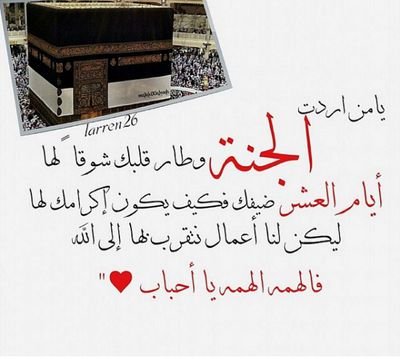 larren26
يا من اردت
الجنة وطار قلبك شوقاً لها
أيام العشر ضيفك فكيف يكون إكرامك لها
ليكن لنا أعمال نتقرب بها إلى الله
فالهمه الهمه يا أحباب ♥"